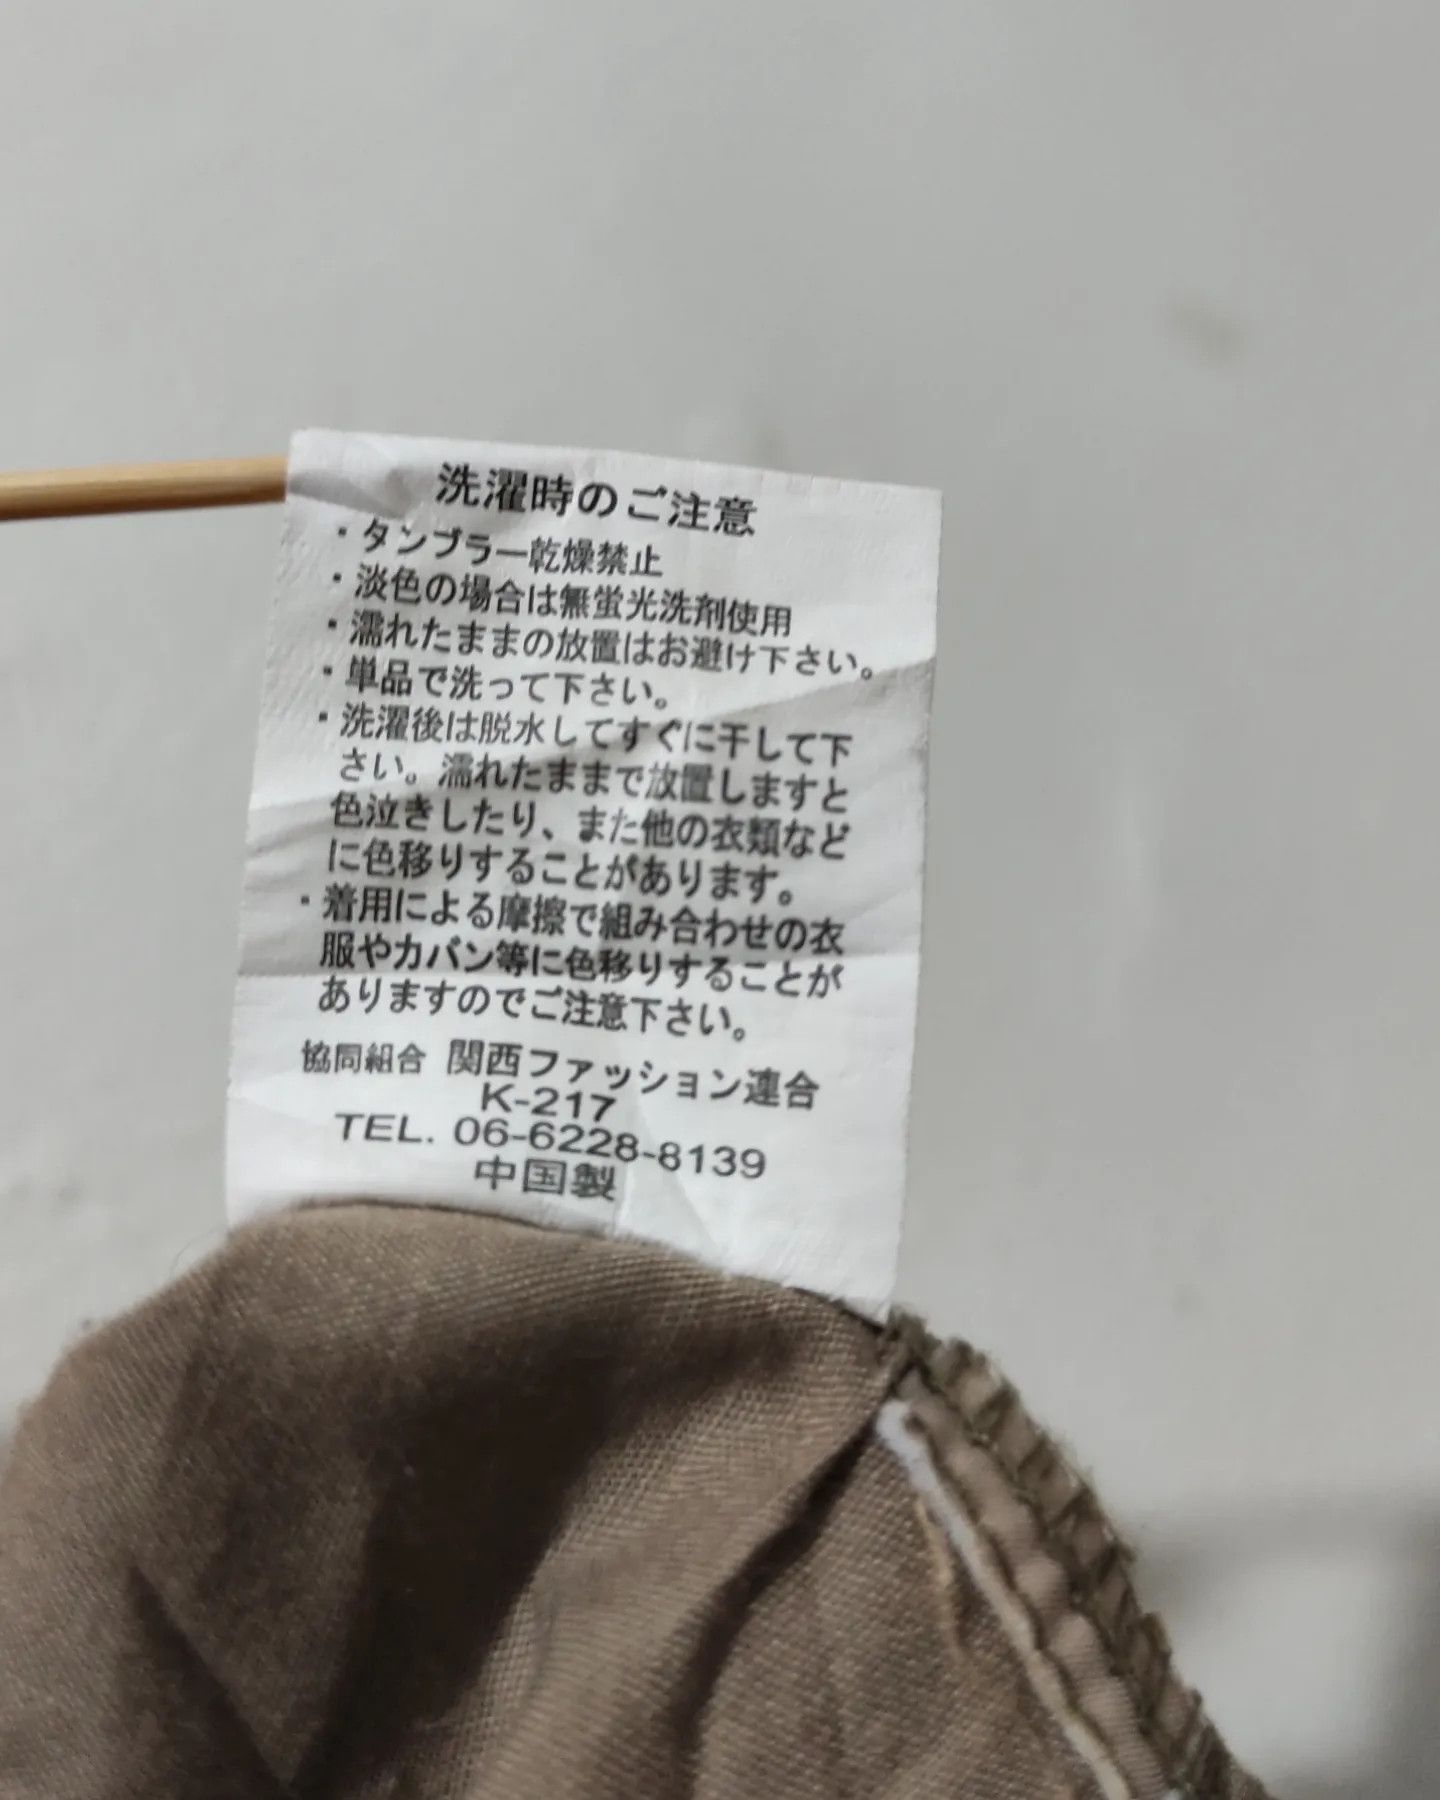 洗濯時のご注意
・タンブラー乾燥禁止
・淡色の場合は無蛍光洗剤使用
・濡れたままの放置はお避け下さい。
・単品で洗って下さい。
・洗濯後は脱水してすぐに干して下
さい。濡れたままで放置しますと
色泣きしたり、また他の衣類など
に色移りすることがあります。
・着用による摩擦で組み合わせの衣
服やカバン等に色移りすることが
ありますのでご注意下さい。
協同組合 関西ファッション連合
K-217
TEL. 06-6228-8139
中国製